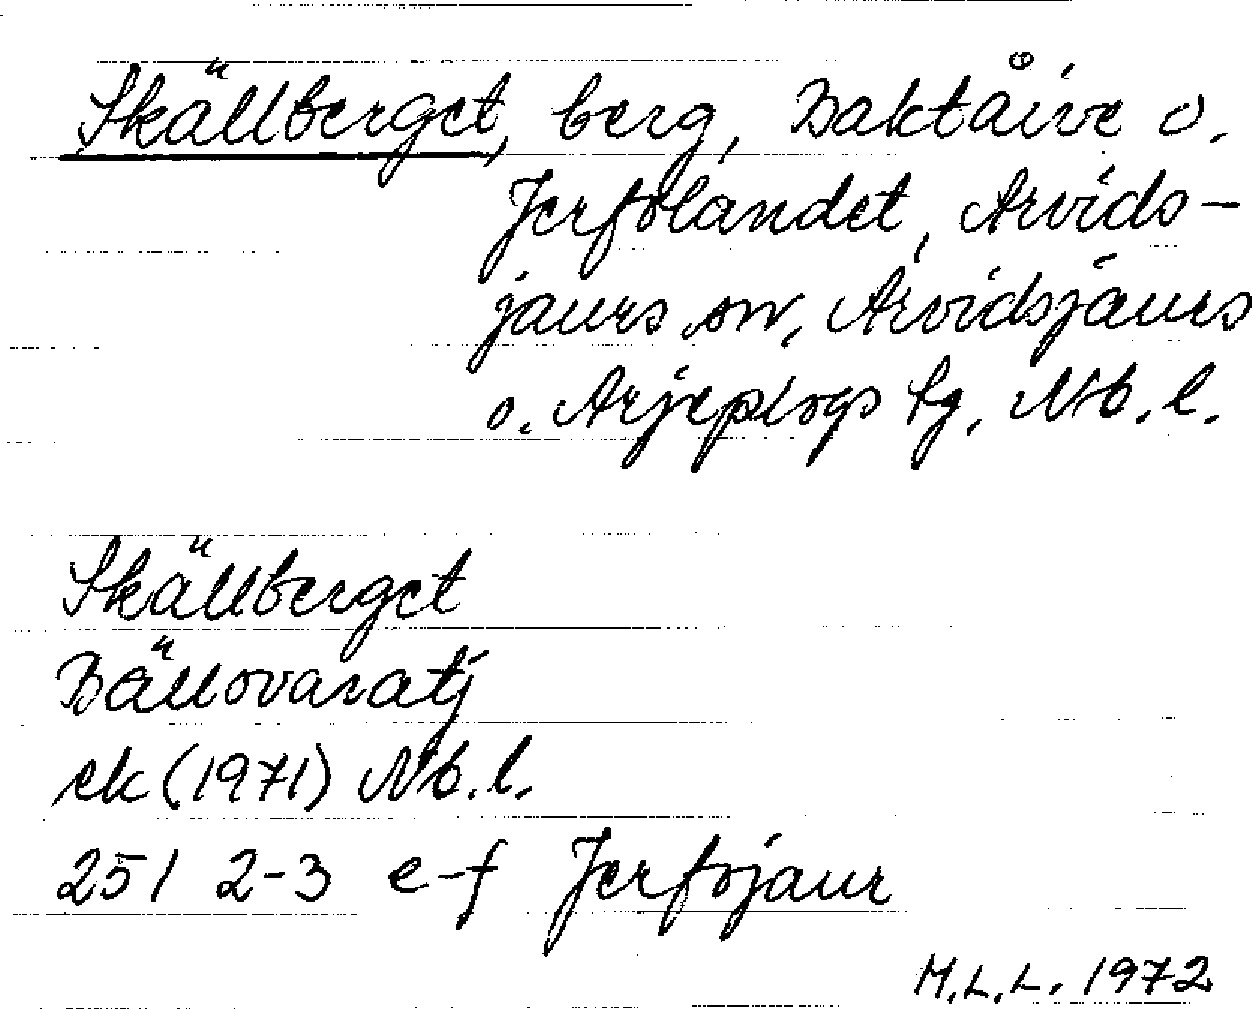 Skällberget, berg, Baktåive o.
Jerfolandet, Arvids-
jaurs sn, Arvidsjaurs
o. Arjeplogs tg, Nb. l.
Skällberget
Bällovaratj
ek (1971) Nb. l.
251 2-3 e-f Jerfojaur
M.L.L. 1972